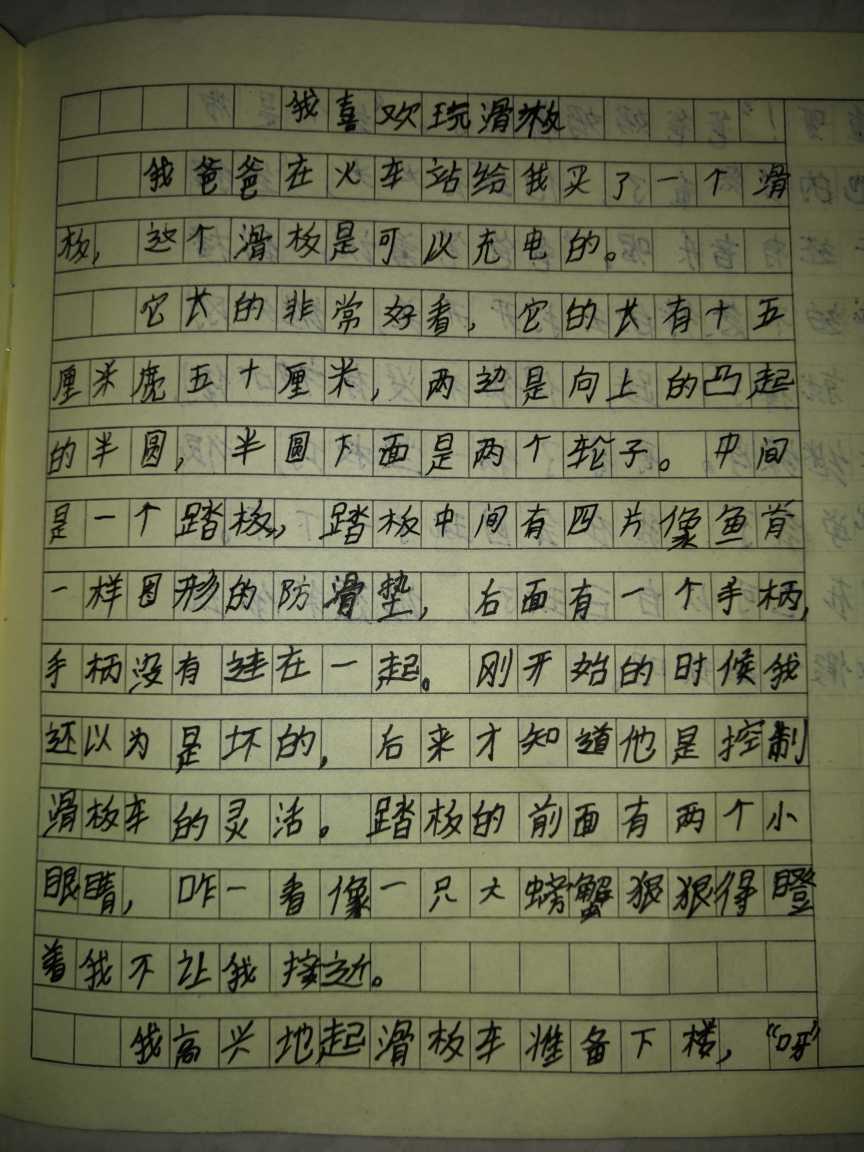 我喜欢玩滑板
我爸爸在火车站给我买了一个滑
板，这个滑板是可以充电的。
它长的非常好看，它的长有十五
厘米宽五十厘米，两边是向上的凸起
的半圆，半圆下面是两个轮子。中间
是一个踏板，踏板中间有四片像鱼骨
一样圆形的防滑垫，后面有一个手柄，
手柄没有连在一起。刚开始的时候我
还以为是坏的，后来才知道他是控制
滑板车的灵活。踏板的前面有两个小
眼睛，咋一看像一只大螃蟹狠狠得瞪
着我不让我接近。
我高兴地起滑板车准备下楼，“呀”